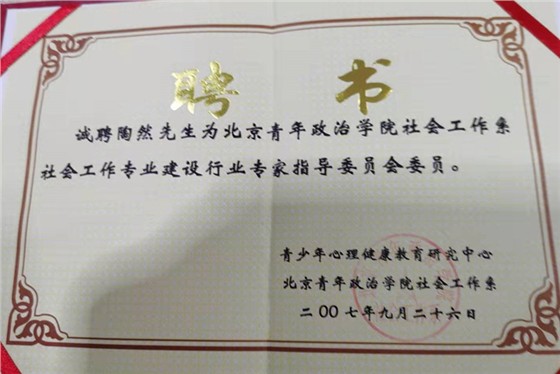 聘书
诚聘陶然先生为北京青年政治学院社会工作系
社会工作专业建设行业专家指导委员会委员。
青少年心理健康教育研究中心
北京青年政治学院社会工作系
二00七年九月二十六日